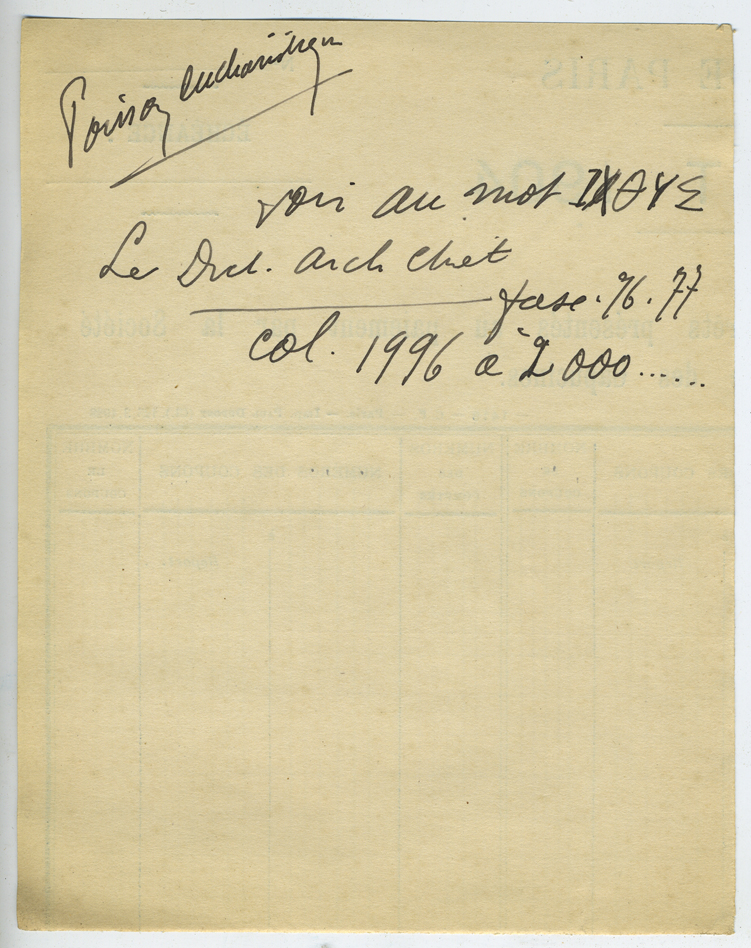 Poisson Eucharistique
voir au mot ΙΧΘΥΣ
Le Dict. Arch Chrét
fasc. 76. 77
col. 1996 à 2000......